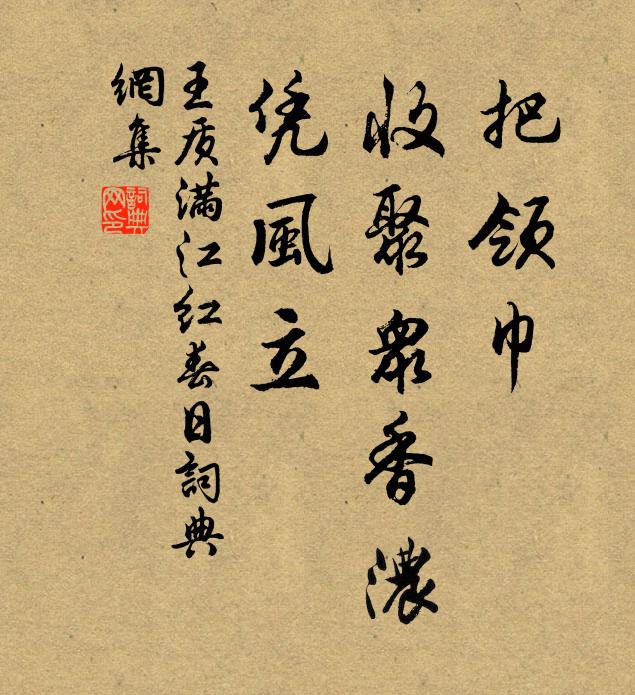 把領巾
收聚眾香濃
凭風立
王质滿江紅春日詞典
網集
詞典
网印